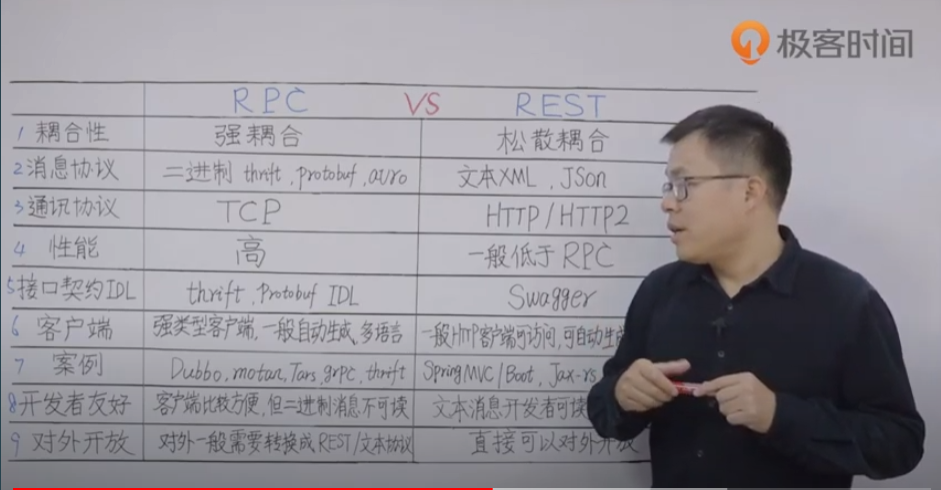 极客时间
RPC VS REST
1 耦合性 强耦合 松散耦合
2 消息协议 二进制 thrift, protobuf, avro 文本XML, JSon
3 通讯协议 TCP HTTP/HTTP2
4 性能 高 一般低于RPC
5 接口契约IDL thrift, Protobuf IDL Swagger
6 客户端 强类型客户端, 一般自动生成, 多语言 一般HTTP客户端可访问, 可自动生成
7 案例 Dubbo, motan, Tars, grpc, thrift SpringMVC/Boot, Jax-rs
8 开发者友好 客户端比较方便, 但二进制消息不可读 文本消息开发者可读
9 对外开放 对外一般需要转换成REST/文本协议 直接可以对外开放